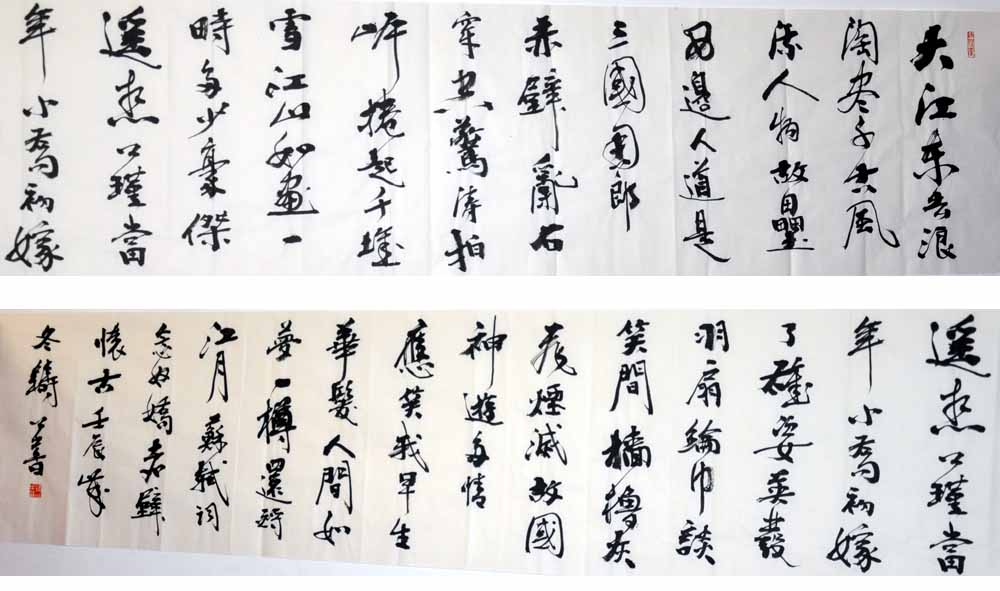 大江東去浪
淘尽千古風
流人物故壘
西邊人道是
三國周郎
赤壁亂石
穿空驚濤拍
岸捲起千堆
雪江山如畫一
時多少豪傑
遙想公瑾當
年小喬初嫁
遙想公瑾當
年小喬初嫁
了雄姿英發
羽扇綸巾談
笑間檣櫓灰
飛煙滅故國
神遊多情
應笑我早生
華髮人間如
夢一樽還酹
江月蘇軾詞
念奴嬌赤壁
懷古壬辰歲
冬書